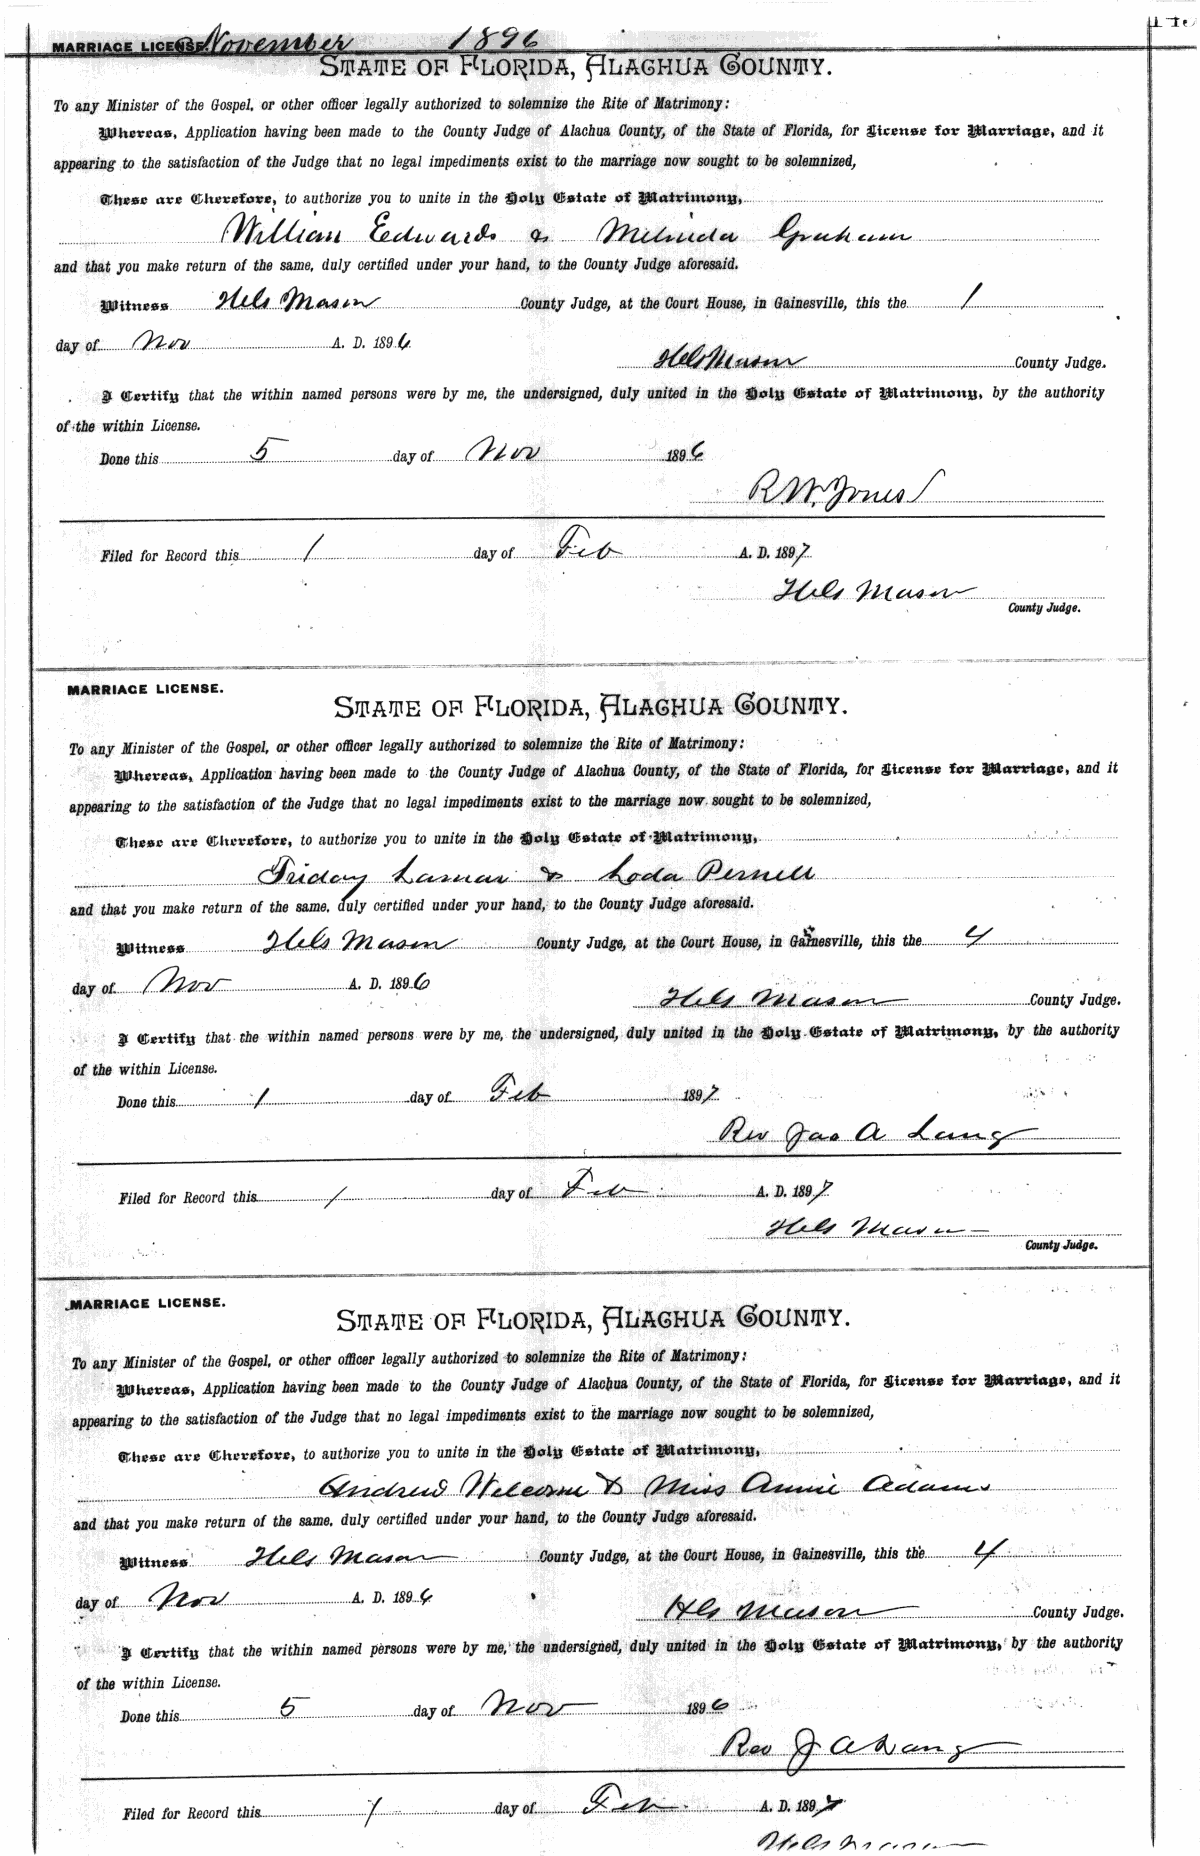 MARRIAGE LICENSE. November 1896
STATE OF FLORIDA, ALACHUA COUNTY.
To any Minister of the Gospel, or other officer legally authorized to solemnize the Rite of Matrimony:
Whereas, Application having been made to the County Judge of Alachua County, of the State of Florida, for License for Marriage, and it
appearing to the satisfaction of the Judge that no legal impediments exist to the marriage now sought to be solemnized,
These are Therefore, to authorize you to unite in the Holy Estate of Matrimony,
William Edwards & Melinda Graham
and that you make return of the same, duly certified under your hand, to the County Judge aforesaid.
Witness Hels Mason County Judge, at the Court House, in Gainesville, this the 1
day of Nov A. D. 1896
Hels Mason County Judge.
I Certify that the within named persons were by me, the undersigned, duly united in the Holy Estate of Matrimony, by the authority
of the within License.
Done this 5 day of Nov 1896
R W. Jones
Filed for Record this 1 day of Feb A. D. 1897
Hels Mason
County Judge.
MARRIAGE LICENSE.
STATE OF FLORIDA, ALACHUA COUNTY.
To any Minister of the Gospel, or other officer legally authorized to solemnize the Rite of Matrimony:
Whereas, Application having been made to the County Judge of Alachua County, of the State of Florida, for License for Marriage, and it
appearing to the satisfaction of the Judge that no legal impediments exist to the marriage now sought to be solemnized,
These are Therefore, to authorize you to unite in the Holy Estate of Matrimony,
Friday Lamar & Loda Pernell
and that you make return of the same, duly certified under your hand, to the County Judge aforesaid.
Witness Hels Mason County Judge, at the Court House, in Gainesville, this the 4
day of Nov A. D. 1896
Hels Mason County Judge.
I Certify that the within named persons were by me, the undersigned, duly united in the Holy Estate of Matrimony, by the authority
of the within License.
Done this 1 day of Feb 1897
Rev Jas A Lang
Filed for Record this 1 day of Feb A. D. 1897
Hels Mason
County Judge.
MARRIAGE LICENSE.
STATE OF FLORIDA, ALACHUA COUNTY.
To any Minister of the Gospel, or other officer legally authorized to solemnize the Rite of Matrimony:
Whereas, Application having been made to the County Judge of Alachua County, of the State of Florida, for License for Marriage, and it
appearing to the satisfaction of the Judge that no legal impediments exist to the marriage now sought to be solemnized,
These are Therefore, to authorize you to unite in the Holy Estate of Matrimony,
Andrew Welcome & Miss Annie Adams
and that you make return of the same, duly certified under your hand, to the County Judge aforesaid.
Witness Hels Mason County Judge, at the Court House, in Gainesville, this the 4
day of Nov A. D. 1896
Hls Mason County Judge.
I Certify that the within named persons were by me, the undersigned, duly united in the Holy Estate of Matrimony, by the authority
of the within License.
Done this 5 day of Nov 1896
Rev J A Lang
Filed for Record this 1 day of Feb A. D. 1897
Hels Mason